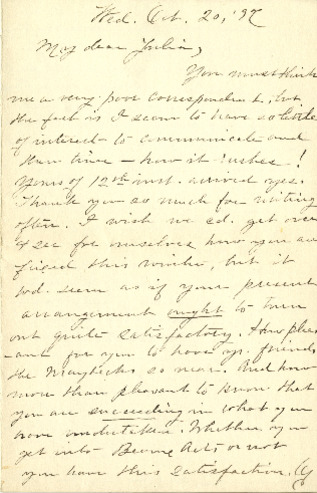 Wed. Oct. 20, '97
My dear Julia,
You must think
me a very poor correspondent, but
the fact is I seem to have so little
of interest to communicate and
then time – how it rushes!
Yours of 12th inst. arrived
Thank you so much for writing
often. I wish we cd. get over
& see for ourselves how you are
fixed this winter, but it
wd. seem as if your present
arrangement ought to turn
out quite satisfactory. How pleas-
ant for you to have yr. friends
the Maybecks so near. And how
more than pleasant to know that
you are succeeding in what you
have undertaken. Whether you
get into Beaux Arts or not
you have this satisfaction.